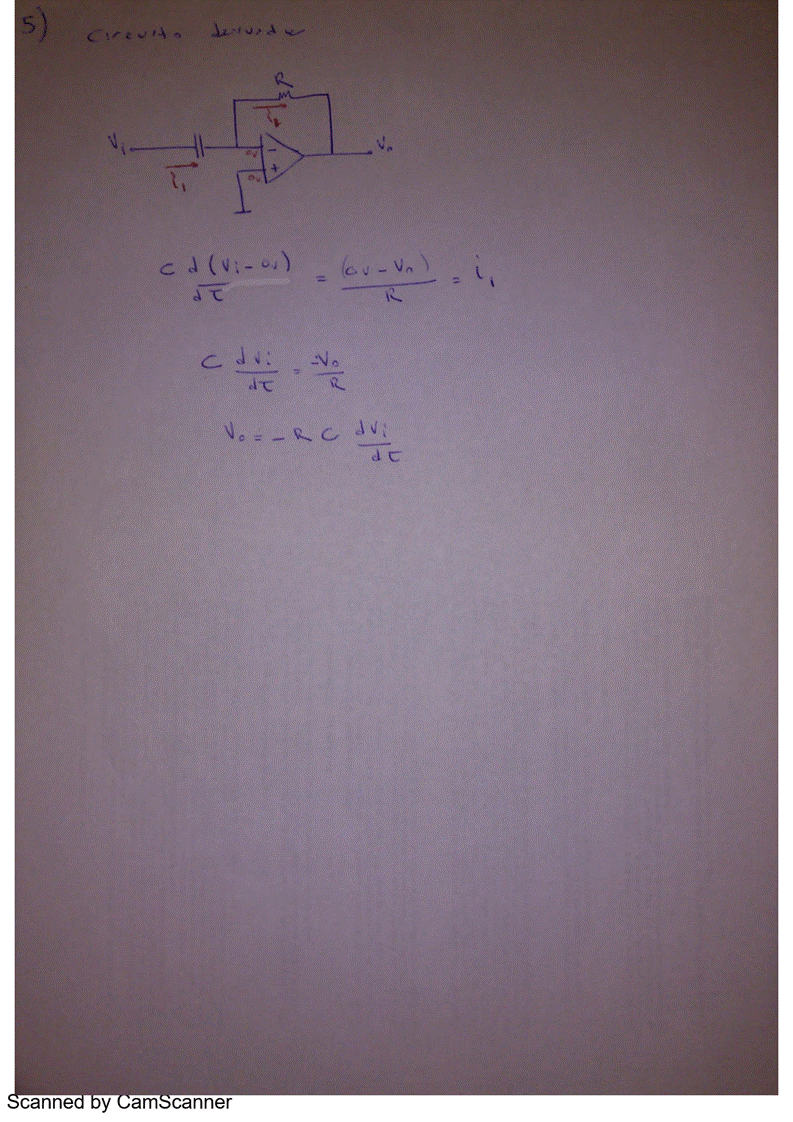 5) Circuito derivador
R
Vi
i1
0v
0v
-
+
C d(Vi-0v)/dt = (0v-Vo)/R = i1
C dVi/dt = -Vo/R
Vo = -RC dVi/dt
Scanned by CamScanner